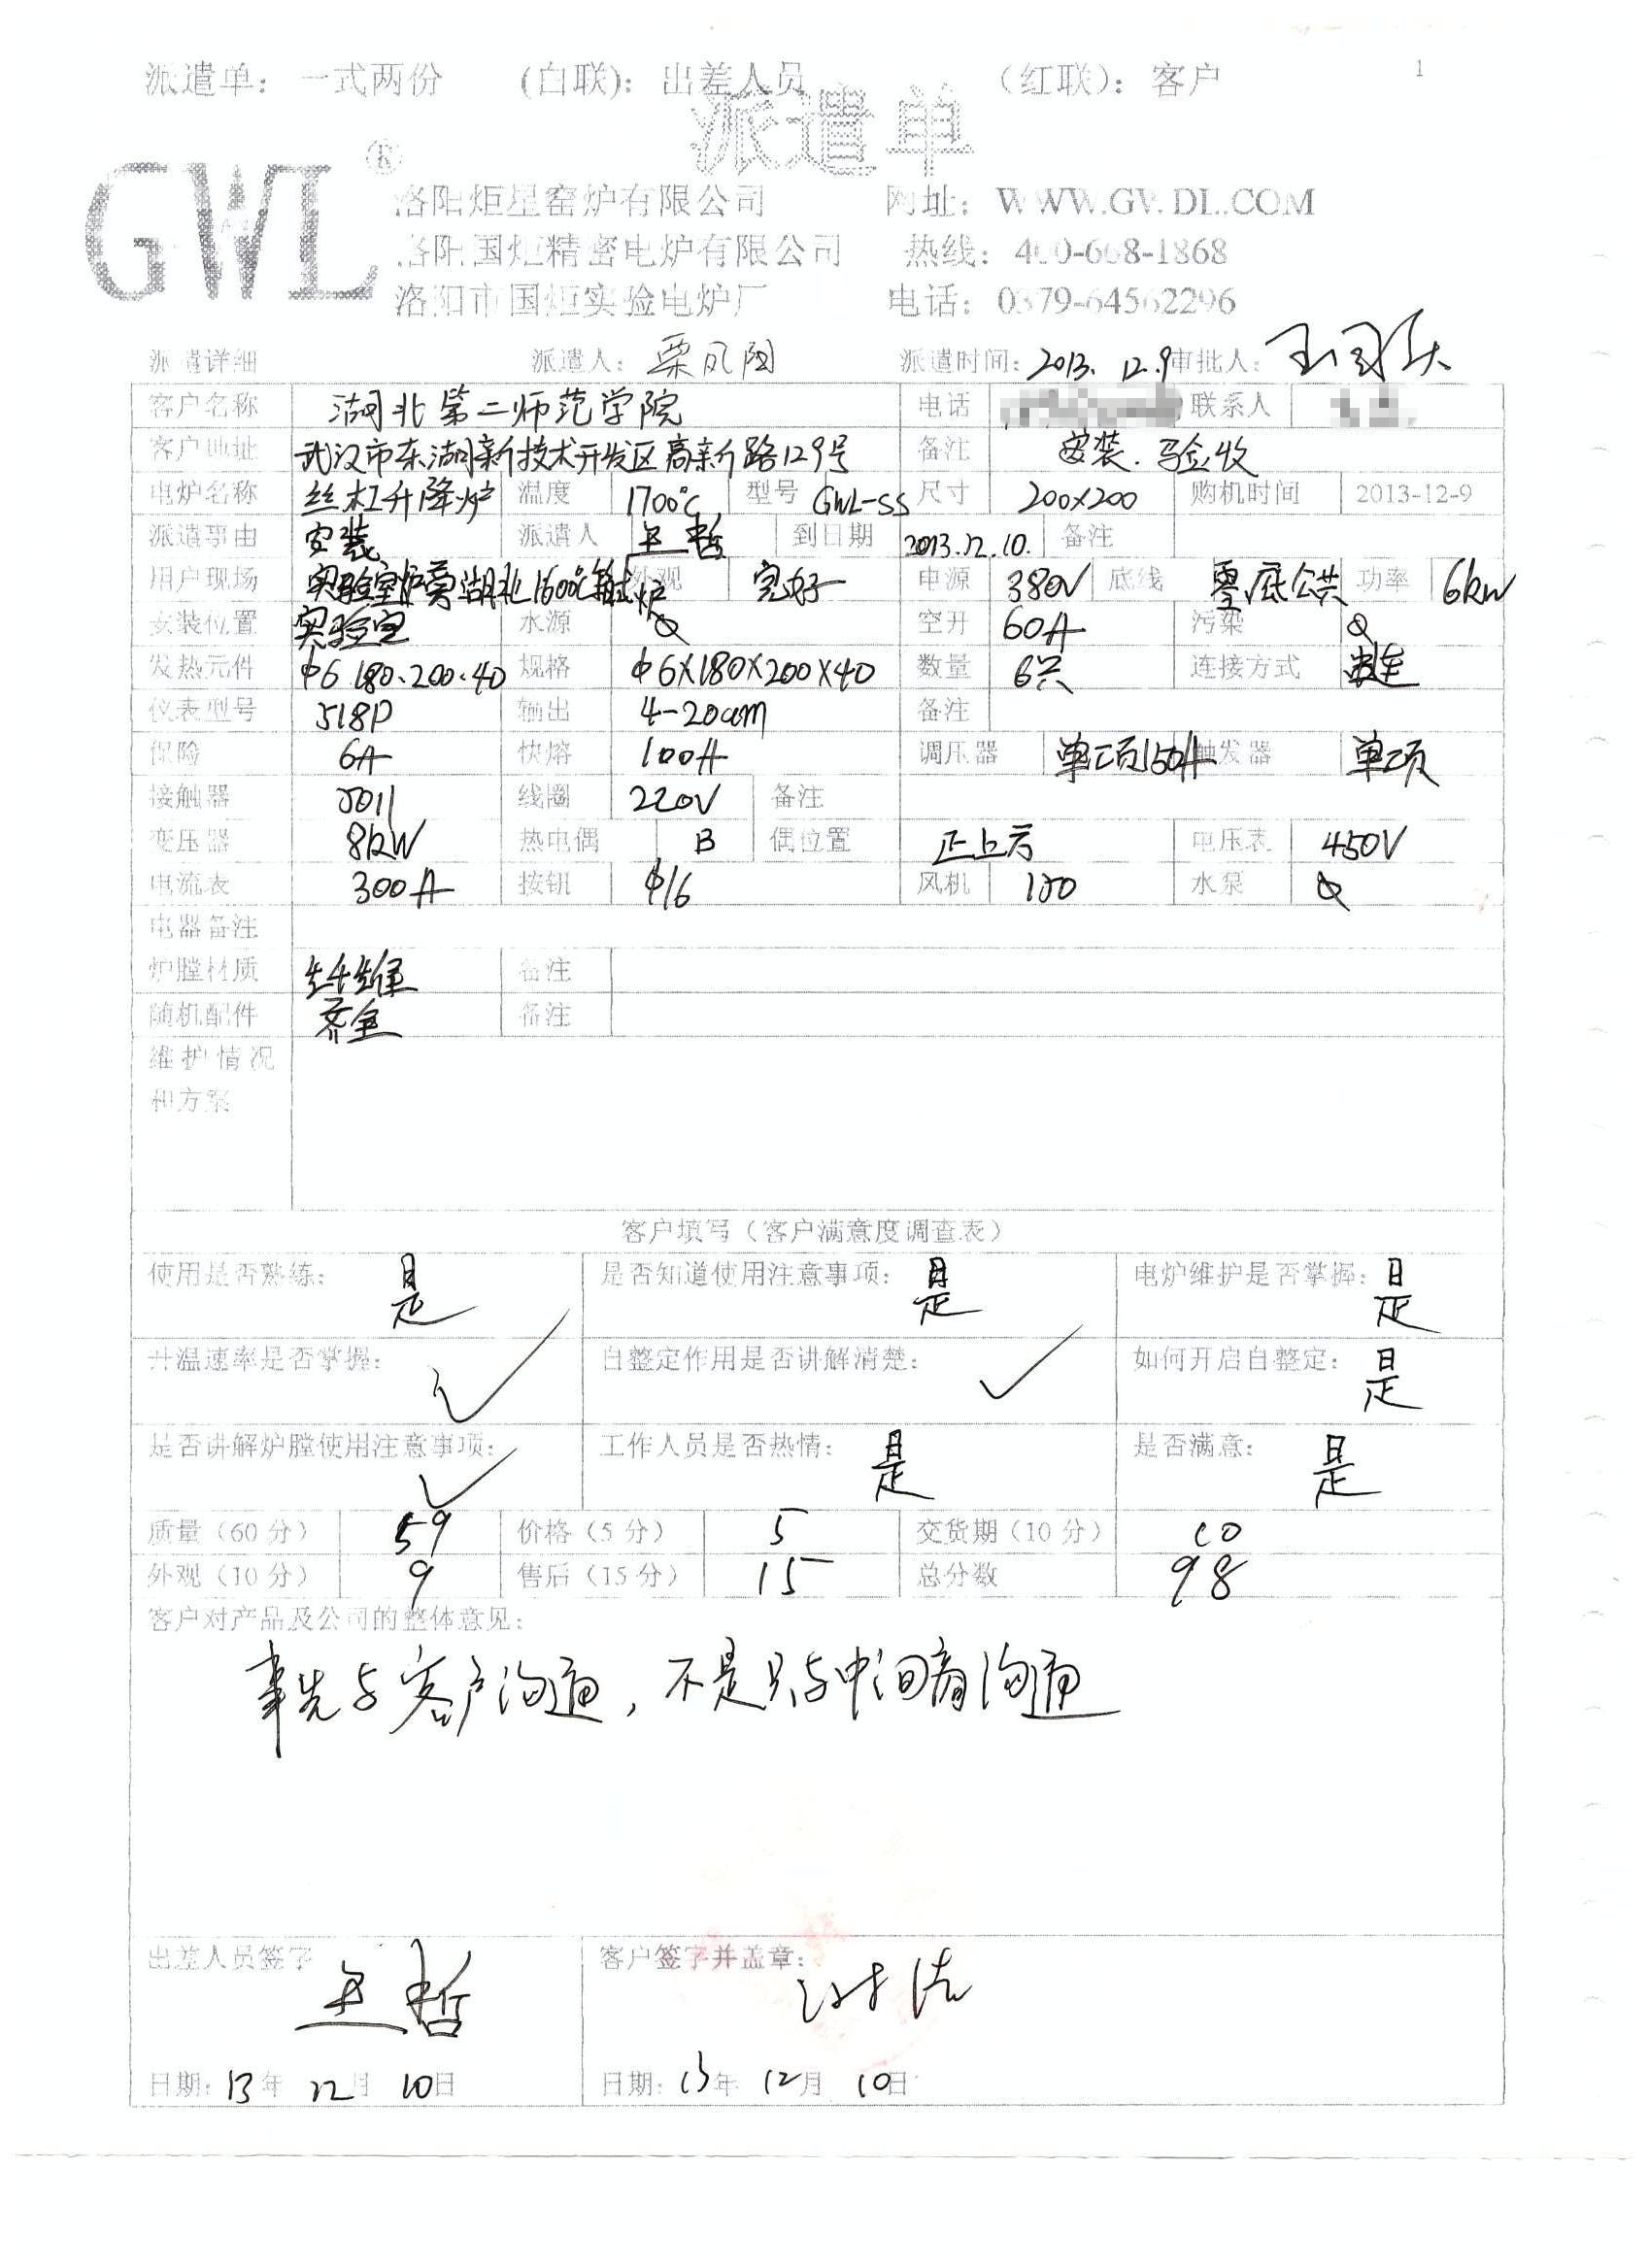 派遣单: 一式两份 (白联): 出差人员 (红联): 客户 1
派遣单
GWL®
洛阳炬星窑炉有限公司 网址: WWW.GWDL.COM
洛阳国炬精密电炉有限公司 热线: 400-668-1868
洛阳市国炬实验电炉厂 电话: 0379-64562296
派遣详细 派遣人: 栗凤阁 派遣时间: 2013.12.9 审批人:
客户名称 湖北第二师范学院 电话 联系人
客户地址 武汉市东湖新技术开发区高新路129号 备注 安装.验收
电炉名称 丝杠升降炉 温度 1700℃ 型号 GWL-SS 尺寸 200×200 购机时间 2013-12-9
派遣事由 安装 派遣人 王哲 到日期 2013.12.10. 备注
用户现场 实验室炉旁湖北1600℃箱式炉 外观 完好 电源 380V 底线 零底公共 功率 6kW
安装位置 实验室 水源 空开 60A 污染
发热元件 φ6.180.200.40 规格 φ6×180×200×40 数量 6只 连接方式 串连
仪表型号 518P 输出 4-20am 备注
保险 6A 快熔 100A 调压器 单项150A 触发器 单项
接触器 5011 线圈 220V 备注
变压器 8kW 热电偶 B 偶位置 正上方 电压表 450V
电流表 300A 按钮 φ16 风机 150 水泵
电器备注
炉膛材质 纤维 备注
随机配件 齐全 备注
维护情况
和方案
客户填写（客户满意度调查表）
使用是否熟练: 是 是否知道使用注意事项: 是 电炉维护是否掌握: 是
升温速率是否掌握: ✓ 自整定作用是否讲解清楚: ✓ 如何开启自整定: 是
是否讲解炉膛使用注意事项: ✓ 工作人员是否热情: 是 是否满意: 是
质量（60分） 59 价格（5分） 5 交货期（10分） 10
外观（10分） 9 售后（15分） 15 总分数 98
客户对产品及公司的整体意见:
事先与客户沟通, 不是只与中间商沟通
出差人员签字 王哲 客户签字并盖章:
日期: 13年 12月 10日 日期: 13年 12月 10日